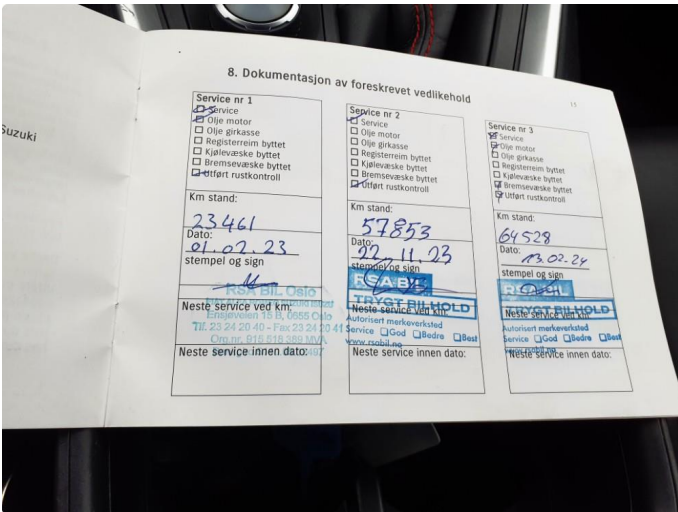 Suzuki
8. Dokumentasjon av foreskrevet vedlikehold
Service nr 1
Service
Olje motor
Olje girkasse
Registerreim byttet
Kjølevæske byttet
Bremsevæske byttet
Utført rustkontroll
Km stand:
23461
Dato:
01.02.23
stempel og sign
RSA BIL Oslo
Ensjøveien 15 B, 0655 Oslo
Neste service ved km:
Tlf. 23 24 20 40 - Fax 23 24 20 41
Org.nr. 915 518 389 MVA
Neste service innen dato:
Service nr 2
Service
Olje motor
Olje girkasse
Registerreim byttet
Kjølevæske byttet
Bremsevæske byttet
Utført rustkontroll
Km stand:
57853
Dato:
22.11.23
stempel og sign
RSA BIL
TRYGT BILHOLD
Neste service ved km:
Autorisert merkeverksted
Service God Bedre Best
www.rsabil.no
Neste service innen dato:
Service nr 3
Service
Olje motor
Olje girkasse
Registerreim byttet
Kjølevæske byttet
Bremsevæske byttet
Utført rustkontroll
Km stand:
64528
Dato:
13.02.24
stempel og sign
RSA BIL
TRYGT BILHOLD
Neste service ved km:
Autorisert merkeverksted
Service God Bedre Best
www.rsabil.no
Neste service innen dato: